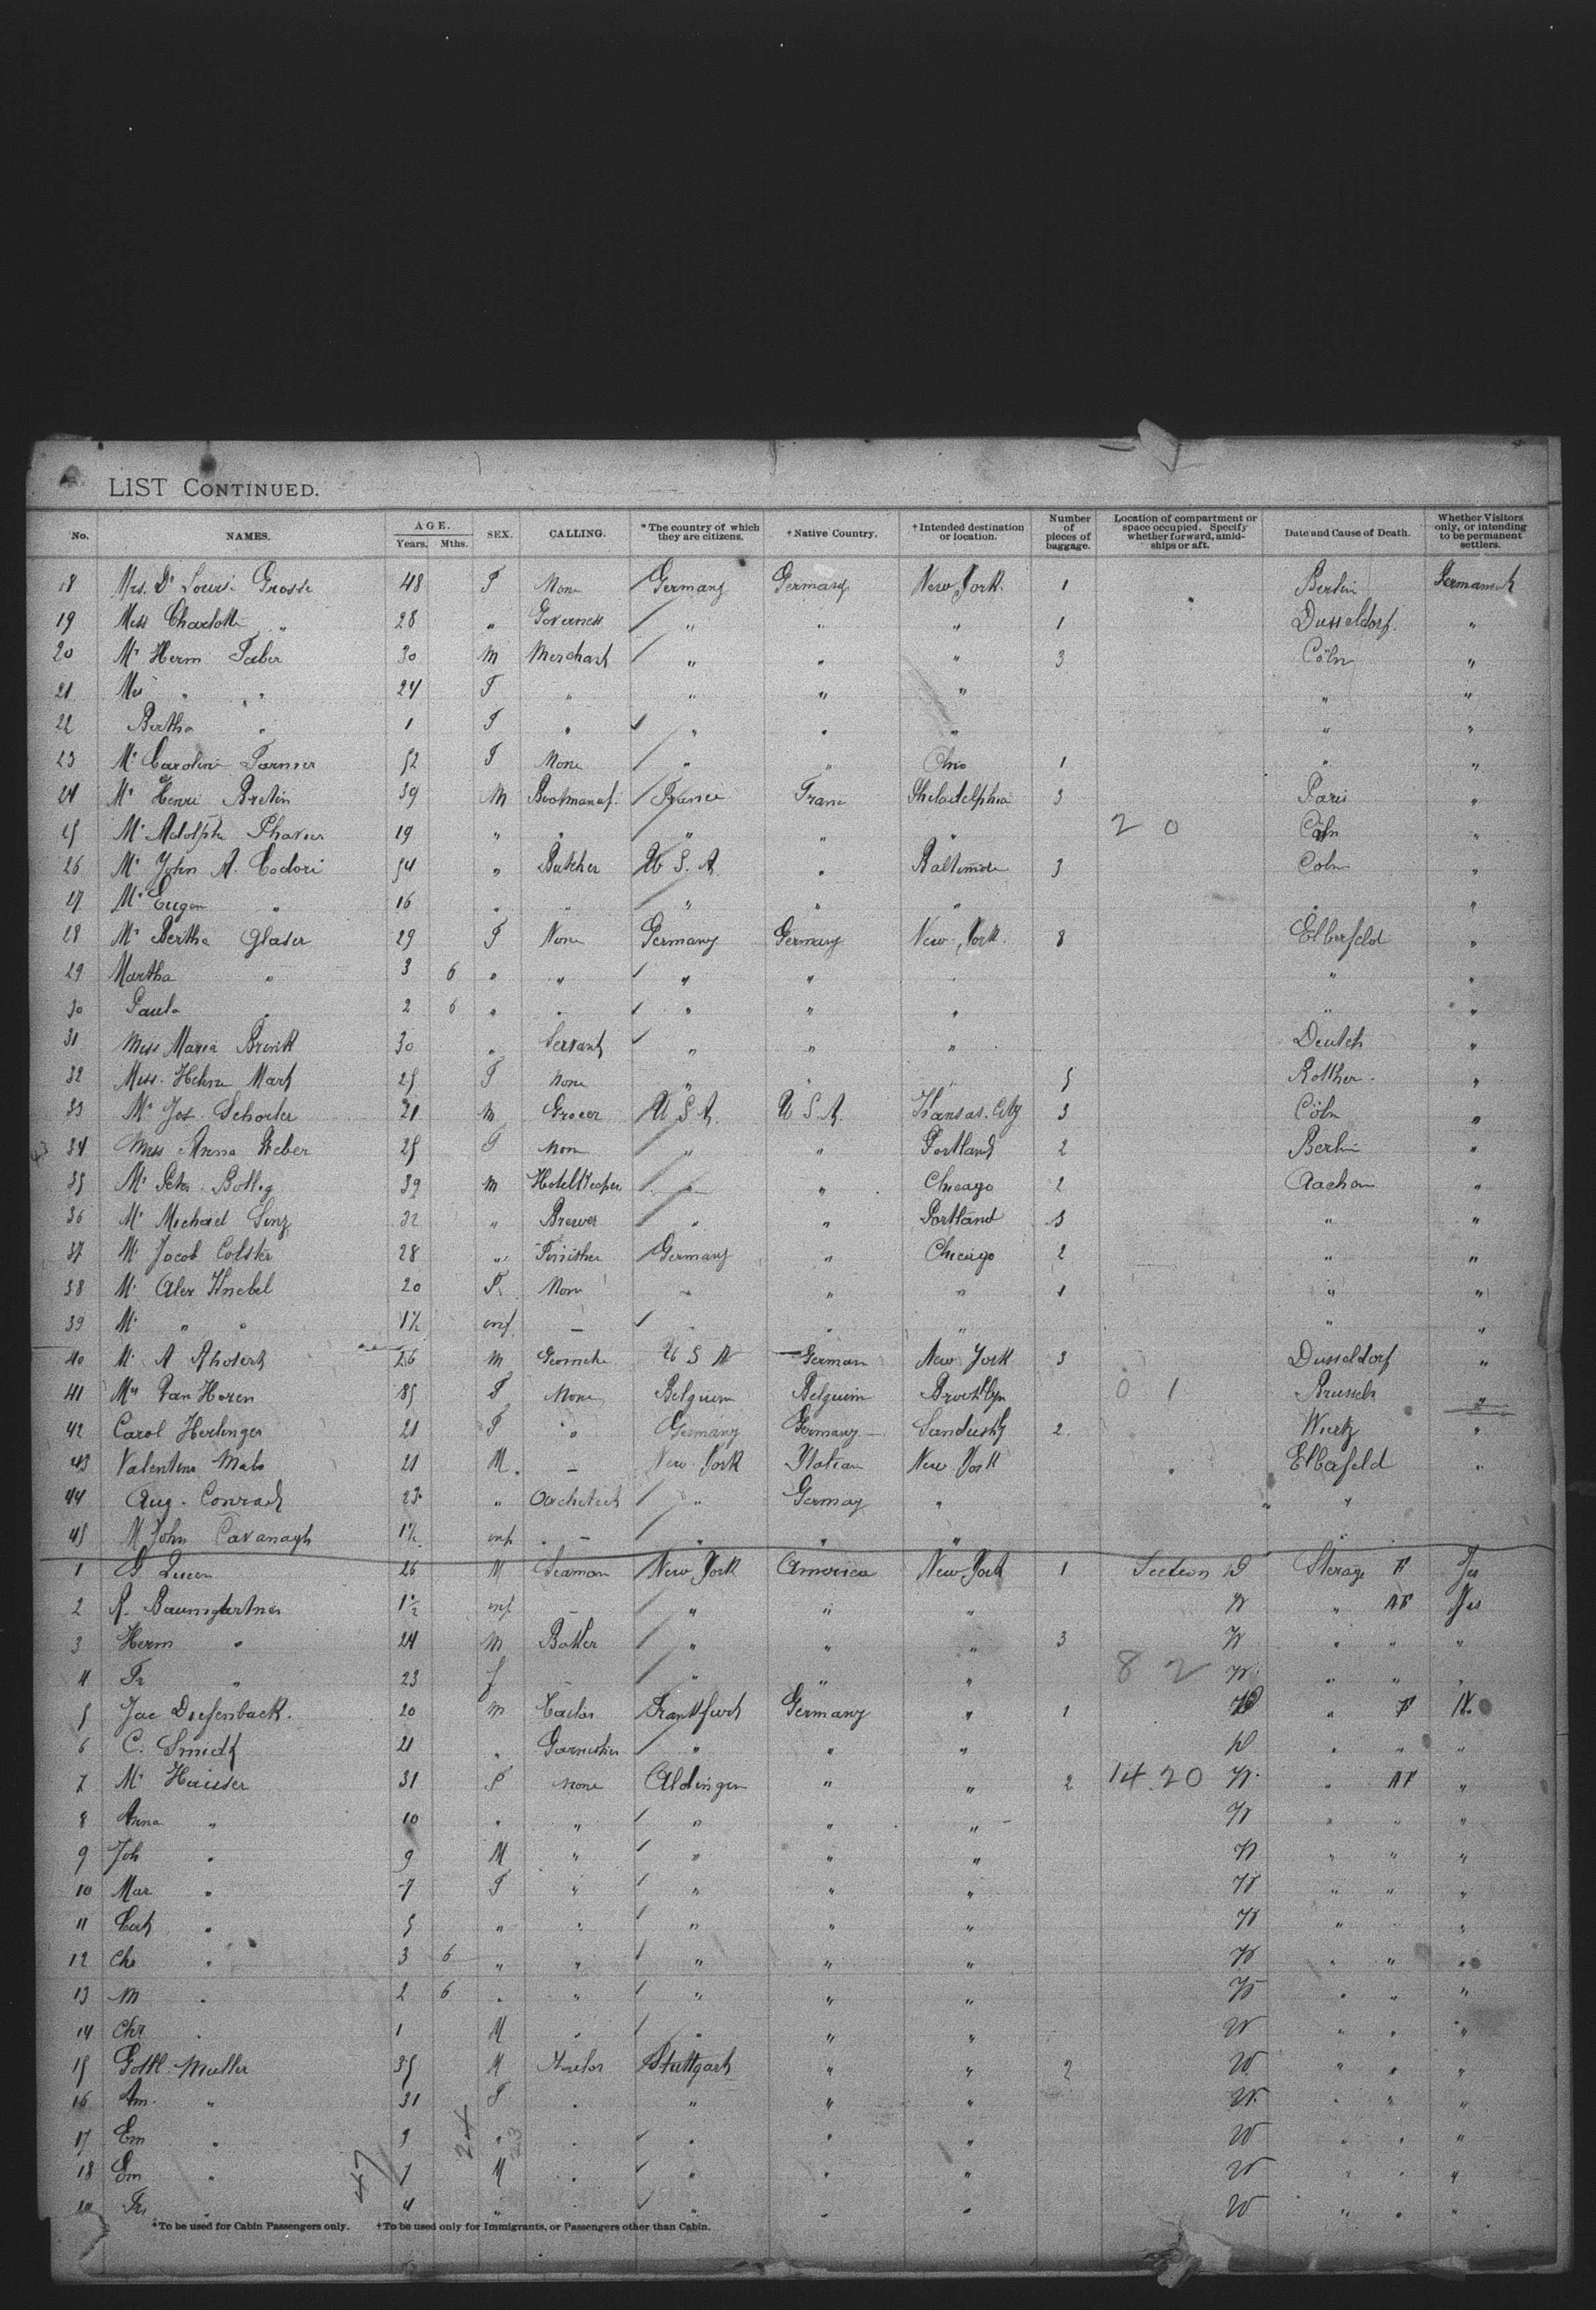 LIST CONTINUED.
No. NAMES. AGE. Years. Mths. SEX. CALLING. *The country of which they are citizens. †Native Country. †Intended destination or location. Number of pieces of baggage. Location of compartment or space occupied. Specify whether forward, amidships or aft. Date and Cause of Death. Whether Visitors only, or intending to be permanent settlers.
18 Mrs. Dr Louis. Grosse 48 F None Germany Germany New York 1 Berlin Permanent
19 Miss Charlotte " 28 " Governess " " " 1 Dusseldorf "
20 Mr Herm Faber 30 M Merchant " " " 3 Cöln "
21 Mrs " " 24 F " " " " " "
22 Bertha " 1 F " " " " " "
23 Mr Caroline Farmer 52 F None " " Ohio 1 " "
24 Mr Henri Bretin 39 M France Franc Philadelphia 3 Paris "
25 Mr Adolph 19 " " " " " 2 0 Cöln "
26 Mr John A. Codori 54 " Butcher U S. A " Baltimore 3 Coln "
27 Mr Eugen " 16 " " " " " " "
28 Mr Bertha Glaser 29 F None Germany Germany New York 8 Elberfeld "
29 Martha " 3 6 " " " " " "
30 Paula " 2 6 " " " " " " "
31 Miss Maria Brink 30 " Servant " " " Deutch "
32 Miss. Helene Mark 25 F None " " " 5 "
33 Mr Jos. Schoeler 21 M Grocer U S A. U S A. Kansas. City 3 Cöln "
34 Miss Anna Weber 25 F Non " " Portland 2 Berlin "
35 Mr Peter Bottig 39 M HotelKeeper " " Chicago 2 Aachen "
36 Mr Michael 32 " Brewer " " Portland 3 " "
37 Mr Jacob Colster 28 " Finisher Germany " Chicago 2 " "
38 Mr Alex Knebel 20 F. Non " " " 1 " "
39 M. " " 1½ inf — " " " " "
40 M. A 26 M U S A German New York 3 Dusseldorf "
41 Mrs Van Horen 85 F None Belgium Belguim Brooklyn 0 1 Brussels "
42 Carol Herlinger 21 F " Germany Germany Sandusky 2 "
43 Valentine Mabs 21 M. — New York Italian New York Elberfeld "
44 Aug. Conrad 23 " Architect " Germay " " "
45 M John Cavanagh 1½ inf. — " " "
1 26 M Seaman New York America New York 1 Section D Sterage F Yes
2 A. Baumgartner 1½ inf — " " " W " AF Yes
3 Herm " 24 M Baker " " " 3 W " " "
4 Fr " 23 f " " " 8 2 W. " " "
5 Jac Diefenback. 20 M Tailor Frankfurt Germany " 1 D " F N.
6 C. Smidt 21 " " " " D " " "
7 Mr Hauser 31 F None Aldingen " " 2 14.20 W. " AF "
8 Anna " 10 " " " " " W " " "
9 Joh " 9 M " " " " W " " "
10 Mar " 7 F " " " " W " " "
11 Cath " 5 " " " " " W " " "
12 Ch " 3 6 " " " " " W " " "
13 M " 2 6 " " " " " W " " "
14 Chr " 1 M " " " " W " " "
15 Gottl. Muller 35 M Stuttgart " " 2 W " " "
16 Am. " 31 F " " " " W. " " "
17 Em " 9 " " " " " W " " "
18 Em " 7 M " " " " W " " "
19 Fr. " 4 " " " " " W " " "
47 24 23
*To be used for Cabin Passengers only. †To be used only for Immigrants, or Passengers other than Cabin.